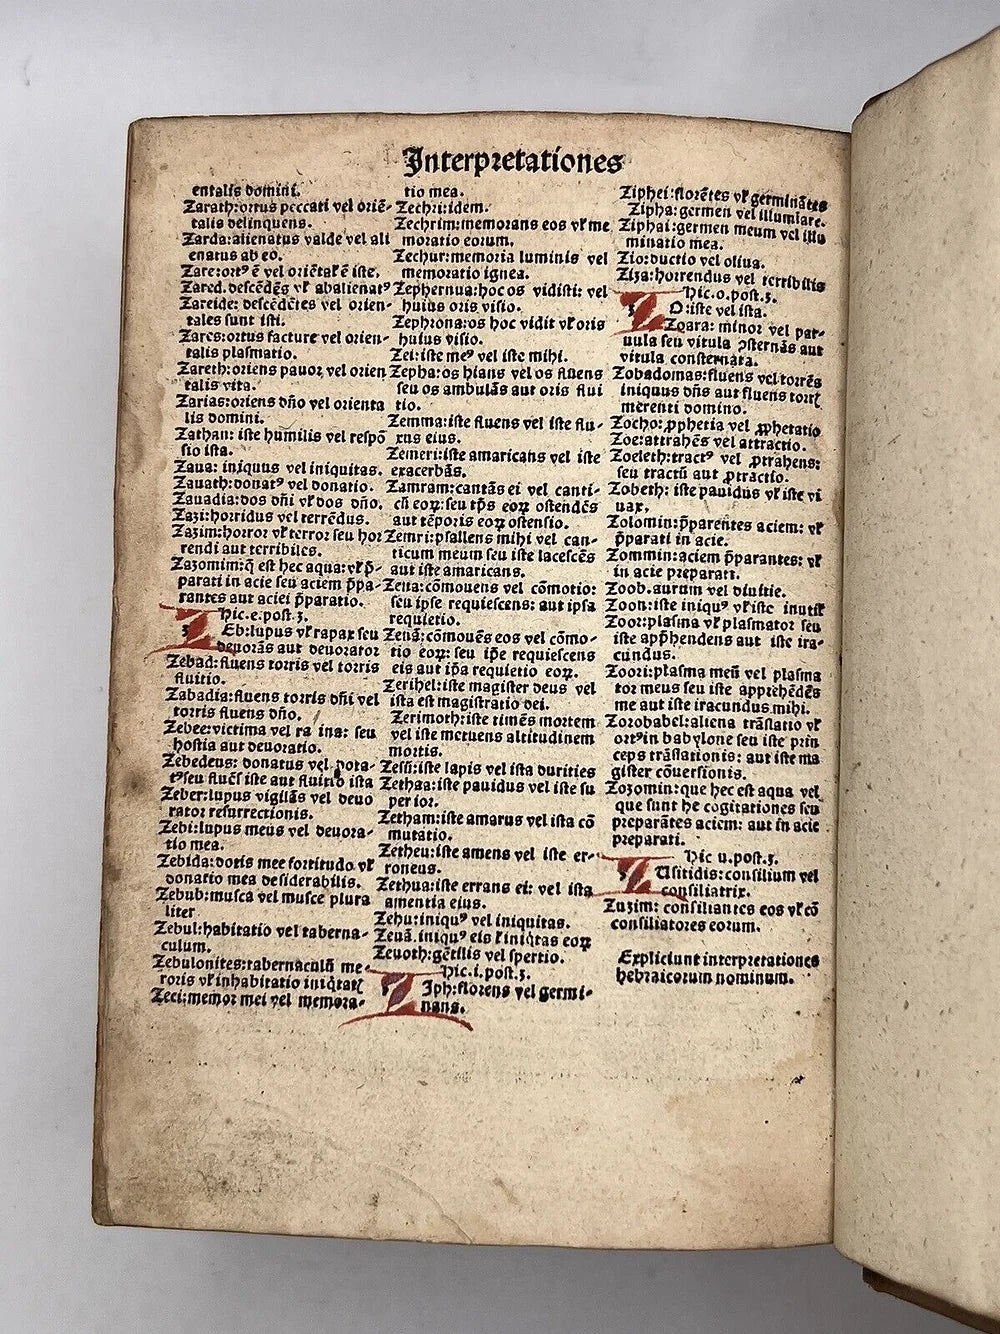 Interpretationes
entalis domini.
Zarath:ortus peccati vel oriē-
talis delinquens.
Zarda:alienatus valde vel ali
enatus ab eo.
Zare:ortꝰ ē vel oriētał ē iste.
Zared.descēdēs vł abalienatꝰ
Zareide: descēdētes vel orien-
tales sunt isti.
Zares:ortus facture vel orien-
talis plasmatio.
Zareth:oriens pauor vel orien
talis vita.
Zarias:oriens dño vel orienta
lis domini.
Zathan: iste humilis vel respō
sio ista.
Zaua: iniquus vel iniquitas.
Zauath:donatꝰ vel donatio.
Zauadia:dos dñi vł dos dño.
Zazi:horridus vel terrēdus.
Zazim:horror vł terror seu hor
rendi aut terribiles.
Zazomim:q̄ est hec aqua:vł p̄-
parati in acie seu aciem p̄pa-
rantes aut aciei p̄paratio.
Hic.e.post.z.
Zeb:lupus vł rapax seu
deuorās aut deuorator
Zebad: fluens torris vel torris
fluitio.
Zabadia:fluens torris dñi vel
torris fluens dño.
Zebee:victima vel ra ina: seu
hostia aut deuoratio.
Zebedeus: donatus vel dota-
tꝰseu fluēs iste aut fluitio ista
Zeber:lupus vigilās vel deuo
rator resurrectionis.
Zebi:lupus meus vel deuora-
tio mea.
Zebida:dotis mee fortitudo vł
donatio mea desiderabilis.
Zebub:musca vel musce plura
liter
Zebul:habitatio vel taberna-
culum.
Zebulonites:tabernaculū me-
roris vł inhabitatio iniq̇tatꝭ
Zeci:memor mei vel memora-
tio mea.
Zechri:idem.
Zechrim:memorans eos vł me
moratio eorum.
Zechur:memoria luminis vel
memoratio ignea.
Zephernua:hoc os vidisti: vel
huius oris visio.
Zephrona:os hoc vidit vł oris
huius visio.
Zei:iste meꝰ vel iste mihi.
Zepha:os hians vel os fluens
seu os ambulās aut oris flui
tio.
Zemma:iste fluens vel iste flu-
xus eius.
Zemeri:iste amaricans vel iste
exacerbās.
Zamram:cantās ei vel canti-
cū eoꝝ:seu tp̄s eoꝝ ostendēs
aut tēporis eoꝝ ostensio.
Zemri:psallens mihi vel can-
ticum meum seu iste lacescēs
aut iste amaricans.
Zena:cōmouens vel cōmotio:
seu ipse requiescens: aut ipsa
requietio.
Zenā:cōmouēs eos vel cōmo-
tio eoꝝ: seu ip̄e requiescens
eis aut ip̄a requietio eoꝝ.
Zerihel:iste magister deus vel
ista est magistratio dei.
Zerimoth:iste timēs mortem
vel iste metuens altitudinem
mortis.
Zesū:iste lapis vel ista durities
Zethaa:iste pauidus vel iste su
perior.
Zetham:iste amarus vel ista cō
mutatio.
Zetheu:iste amens vel iste er-
roneus.
Zethua:iste errans ei: vel ista
amentia eius.
Zehu:iniquꝰ vel iniquitas.
Zeuā.iniquꝰ eis ł iniq̇tas eoꝝ
Zeuoth:gētilis vel spertio.
Hic.i.post.z.
Ziph:florens vel germi-
nans.
Ziphei:florētes vł germināтes
Zipha:germen vel illumiare.
Ziphai:germen meum vel illu
minatio mea.
Zio:ductio vel oliua.
Ziza:horrendus vel terribilis
Hic.o.post.z.
ZO:iste vel ista.
Zoara: minor vel par-
uula seu vitula ꝯsternās aut
vitula consternata.
Zobadomas:fluens vel torrēs
iniquus dñs aut fluens torrꝭ
merenti domino.
Zocho:ꝓphetia vel ꝓphetatio
Zoe:attrahēs vel attractio.
Zoeleth:tractꝰ vel ꝓtrahens:
seu tractū aut ꝓtractio.
Zobeth: iste pauidus vł iste vi
uax.
Zolomin:p̄parentes aciem: vł
p̄parati in acie.
Zommin:aciem p̄parantes: vł
in acie preparati.
Zoob.aurum vel diuitie.
Zoon:iste iniquꝰ vł iste inutił
Zoor:plasma vł plasmator seu
iste app̄hendens aut iste ira-
cundus.
Zoori:plasma meū vel plasma
tor meus seu iste apprehēdēs
me aut iste iracundus mihi.
Zorobabel:aliena trāslatio vł
ortꝰin babylone seu iste prin
ceps trāslationis: aut iste ma
gister cōuersionis.
Zozomin:que hec est aqua vel
que sunt he cogitationes seu
preparātes aciem: aut in acie
preparati.
Hic u.post.z.
ZUsitidis:consilium vel
consiliatrix.
Zuzim: consiliantes eos vł cō
consiliatores eorum.
Expliciunt interpretationes
hebraicorum nominum.